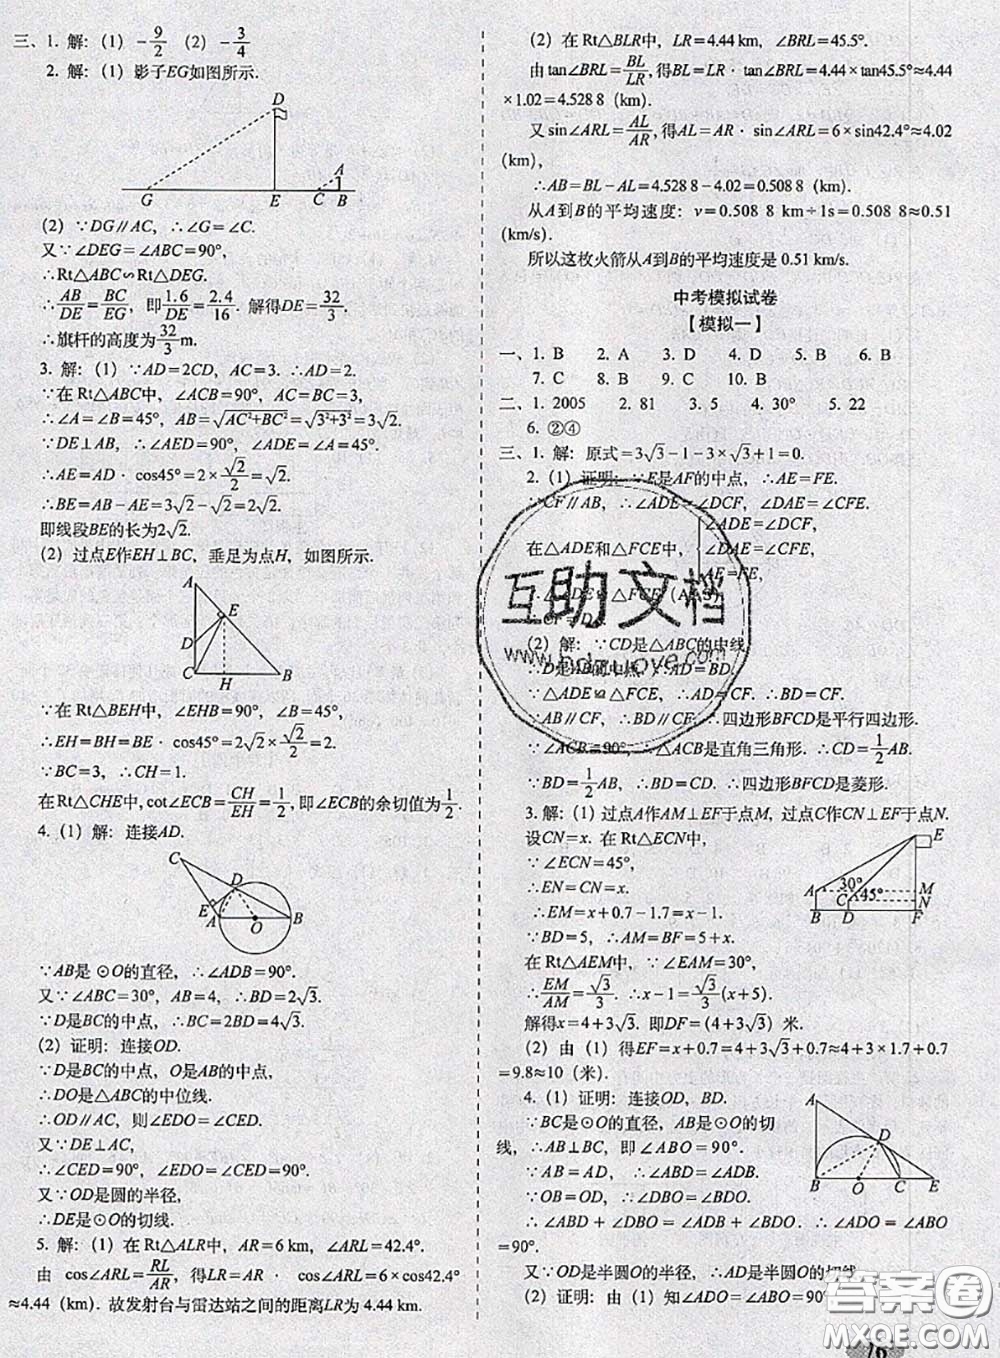 三、1. 解: (1) -9/2 (2) -3/4
2. 解: (1) 影子EG如图所示.
D
G E C B
A
(2) ∵DG∥AC, ∴∠G=∠C.
又∵∠DEG=∠ABC=90°,
∴Rt△ABC∽Rt△DEG.
∴AB/DE=BC/EG, 即1.6/DE=2.4/16. 解得DE=32/3.
∴旗杆的高度为32/3m.
3. 解: (1) ∵AD=2CD, AC=3. ∴AD=2.
∵在Rt△ABC中, ∠ACB=90°, AC=BC=3,
∴∠A=∠B=45°, AB=√(AC²+BC²)=√(3²+3²)=3√2.
∵DE⊥AB, ∴∠AED=90°, ∠ADE=∠A=45°.
∴AE=AD·cos45°=2×√2/2=√2.
∴BE=AB-AE=3√2-√2=2√2.
即线段BE的长为2√2.
(2) 过点E作EH⊥BC, 垂足为点H, 如图所示.
A
E
D
C H B
∵在Rt△BEH中, ∠EHB=90°, ∠B=45°,
∴EH=BH=BE·cos45°=2√2×√2/2=2.
∵BC=3, ∴CH=1.
在Rt△CHE中, cot∠ECB=CH/EH=1/2, 即∠ECB的余切值为1/2.
4. (1) 解: 连接AD.
C
D
E
A O B
∵AB是⊙O的直径, ∴∠ADB=90°.
又∵∠ABC=30°, AB=4, ∴BD=2√3.
∵D是BC的中点, ∴BC=2BD=4√3.
(2) 证明: 连接OD.
∵D是BC的中点, O是AB的中点,
∴DO是△ABC的中位线.
∴OD∥AC, 则∠EDO=∠CED.
又∵DE⊥AC,
∴∠CED=90°, ∠EDO=∠CED=90°.
又∵OD是圆的半径,
∴DE是⊙O的切线.
5. 解: (1) 在Rt△ALR中, AR=6 km, ∠ARL=42.4°.
由 cos∠ARL=RL/AR, 得LR=AR·cos∠ARL=6×cos42.4°
≈4.44 (km). 故发射台与雷达站之间的距离LR为4.44 km.
(2) 在Rt△BLR中, LR=4.44 km, ∠BRL=45.5°.
由tan∠BRL=BL/LR, 得BL=LR·tan∠BRL=4.44×tan45.5°≈4.44
×1.02=4.528 8 (km).
又sin∠ARL=AL/AR, 得AL=AR·sin∠ARL=6×sin42.4°≈4.02
(km),
∴AB=BL-AL=4.528 8-4.02=0.508 8 (km).
从A到B的平均速度: v=0.508 8 km÷1s=0.508 8≈0.51
(km/s).
所以这枚火箭从A到B的平均速度是0.51 km/s.
中考模拟试卷
【模拟一】
一、1. B 2. A 3. D 4. D 5. B 6. B
7. C 8. B 9. C 10. B
二、1. 2005 2. 81 3. 5 4. 30° 5. 22
6. ②④
三、1. 解: 原式=3√3-1-3×√3+1=0.
2. (1) 证明: ∵E是AF的中点, ∴AE=FE.
∵CF∥AB, ∴∠ADE=∠DCF, ∠DAE=∠CFE.
∠ADE=∠DCF,
在△ADE和△FCE中, ∠DAE=∠CFE,
AE=FE,
∴△ADE≌△FCE (AAS).
∴CF=DA.
(2) 解: ∵CD是△ABC的中线,
∴D是AB的中点, ∴AD=BD.
∵△ADE≌△FCE, ∴AD=CF. ∴BD=CF.
∵AB∥CF, ∴BD∥CF, ∴四边形BFCD是平行四边形.
∵∠ACB=90°, ∴△ACB是直角三角形. ∴CD=1/2AB.
∵BD=1/2AB, ∴BD=CD. ∴四边形BFCD是菱形.
3. 解: (1) 过点A作AM⊥EF于点M, 过点C作CN⊥EF于点N.
设CN=x. 在Rt△ECN中,
∵∠ECN=45°,
∴EN=CN=x.
∴EM=x+0.7-1.7=x-1.
∵BD=5, ∴AM=BF=5+x.
在Rt△AEM中, ∵∠EAM=30°,
∴EM/AM=√3/3. ∴x-1=√3/3(x+5).
解得x=4+3√3. 即DF=(4+3√3) 米.
E
A 30° M
C 45° N
B D F
(2) 由 (1) 得EF=x+0.7=4+3√3+0.7≈4+3×1.7+0.7
=9.8≈10 (米).
4. (1) 证明: 连接OD, BD.
∵BC是⊙O的直径, AB是⊙O的切
线, ∴AB⊥BC, 即∠ABO=90°.
∵AB=AD, ∴∠ABD=∠ADB.
∵OB=OD, ∴∠DBO=∠BDO.
∴∠ABD+∠DBO=∠ADB+∠BDO. ∴∠ADO=∠ABO
=90°.
A
D
B O C E
又∵OD是半圆O的半径, ∴AD是半圆O的切线.
(2) 证明: 由 (1) 知, ∠ADO=∠ABO=90°
互助文档
www.hdzuoye.com
答案圈
76